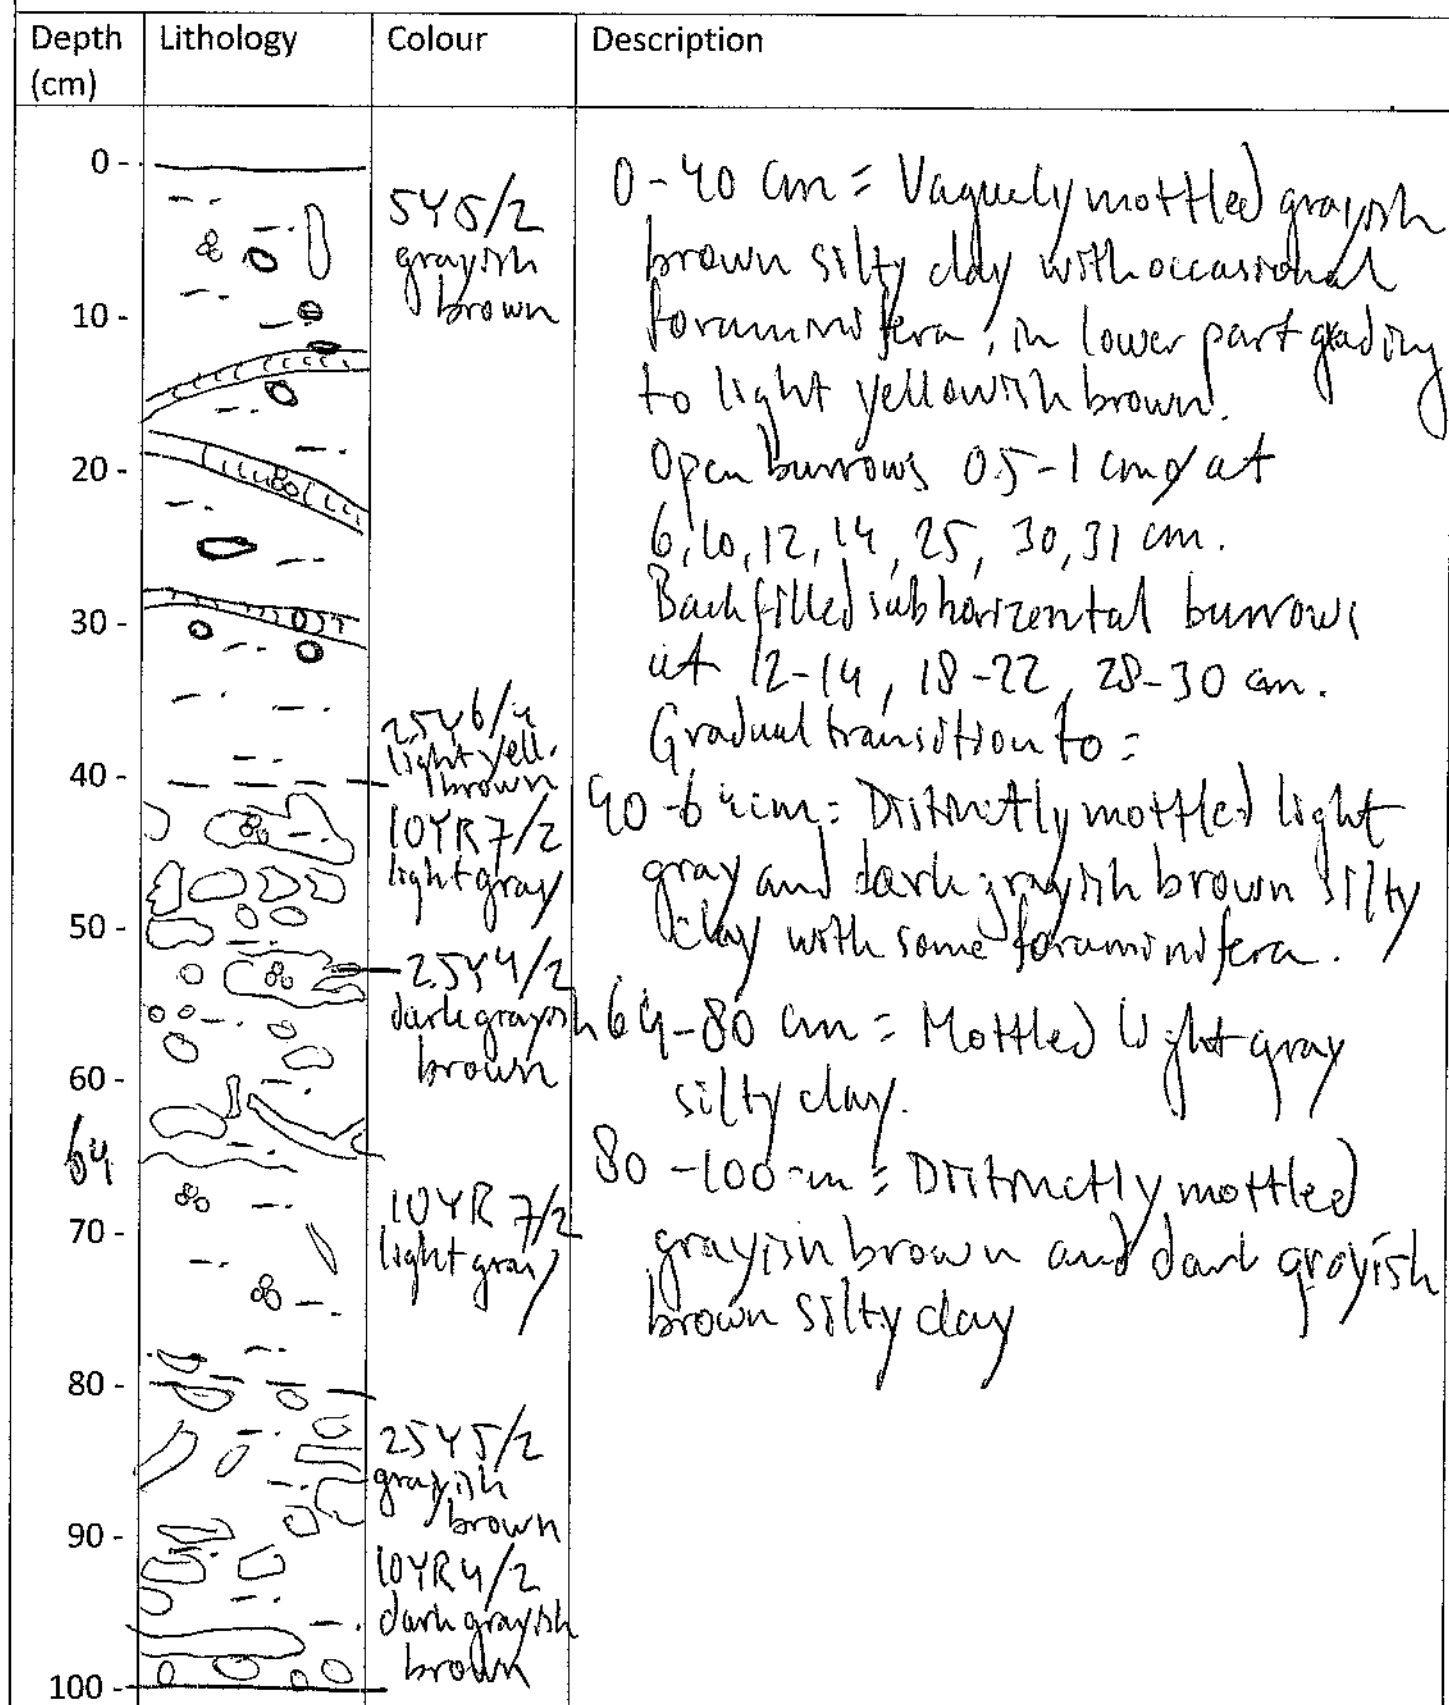 Depth (cm)
Lithology
Colour
Description
0 -
10 -
20 -
30 -
40 -
50 -
60 -
64
70 -
80 -
90 -
100 -
5Y5/2
grayish
brown
2.5Y6/4
light yell.
brown
10YR7/2
light gray
2.5Y4/2
dark grayish
brown
10YR 7/2
light gray
2.5Y5/2
grayish
brown
10YR4/2
dark grayish
brown
0-40 cm = Vaguely mottled grayish
brown silty clay with occasional
foraminifera, in lower part grading
to light yellowish brown.
Open burrows 0.5-1 cm ø at
6, 10, 12, 14, 25, 30, 31 cm.
Backfilled subhorizontal burrows
at 12-14, 18-22, 28-30 cm.
Gradual transition to =
40-64cm = Distinctly mottled light
gray and dark grayish brown silty
clay with some foraminifera.
64-80 cm = Mottled light gray
silty clay.
80-100 cm = Distinctly mottled
grayish brown and dark grayish
brown silty clay